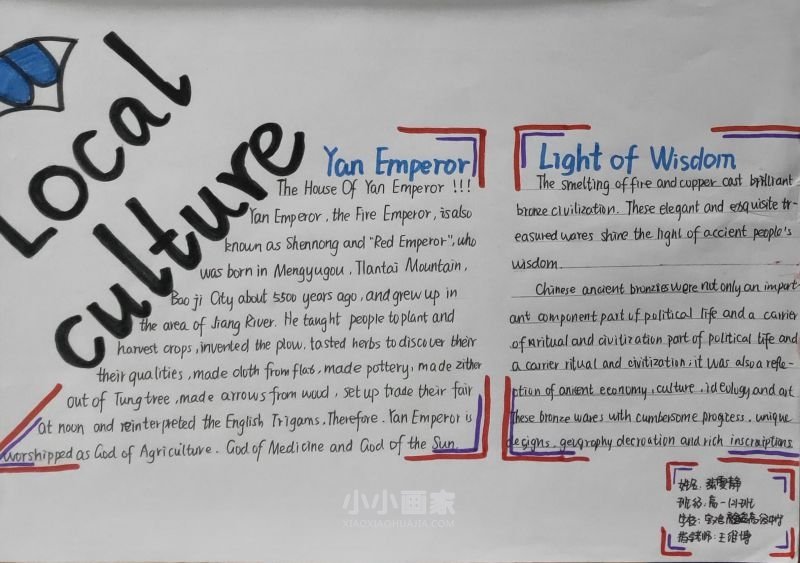 Local
culture
Yan Emperor
The House Of Yan Emperor !!!
Yan Emperor, the Fire Emperor, is also
known as Shennong and "Red Emperor", who
was born in Mengyugou, Tlantai Mountain,
Bao ji City about 5500 years ago, and grew up in
the area of Jiang River. He taught people to plant and
harvest crops, invented the plow, tasted herbs to discover their
their qualities, made cloth from flat, made pottery, made zither
out of Tung tree, made arrows from wood, set up trade their fair
at noon and reinterpreted the English Trigams. Therefore. Yan Emperor is
worshipped as God of Agriculture. God of Medicine and God of the Sun.
Light of Wisdom
The smelting of fire and copper cast brilliant
bronze civilization. These elegant and exquisite tr-
easured wares shine the light of accient people's
wisdom.
Chinese ancient bronzies were not only an import
ant component part of political life and a carrier
of nritual and civitization part of political life and
a carrier ritual and civitization; it was also a refle-
ption of ancient economy, culture, ideology and art
These bronze wares with cumbersome progtess, unique
designs, geography decroation and rich inscraiptions
姓名: 张雯静
班级: 高一(2)班
学校:
指导老师: 王维博
小小画家
XIAOXIAOHUAJIA.COM